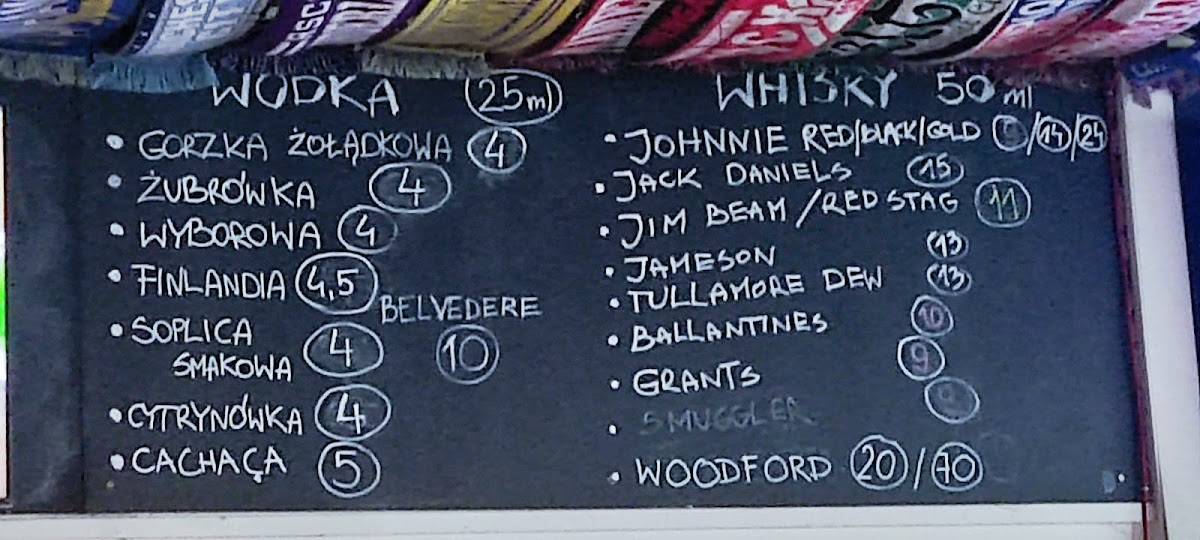 WÓDKA 25ml
• GORZKA ŻOŁĄDKOWA 4
• ŻUBRÓWKA 4
• WYBOROWA 4
• FINLANDIA 4,5
BELVEDERE
10
• SOPLICA
SMAKOWA 4
• CYTRYNÓWKA 4
• CACHAÇA 5
WHISKY 50 ml
• JOHNNIE RED/BLACK/GOLD /14/24
• JACK DANIELS 15
• JIM BEAM/RED STAG 11
• JAMESON 13
• TULLAMORE DEW 13
• BALLANTINES 10
• GRANTS 9
• SMUGGLER
• WOODFORD 20/70